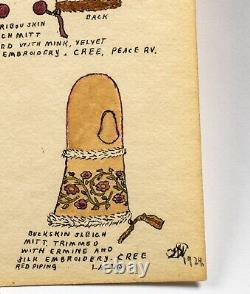 BACK
RIBOU SKIN
CH MITT
ED WITH MINK, VELVET
EMBROIDERY. CREE, PEACE RV.
BUCKSKIN SLEIGH
MITT, TRIMMED
WITH ERMINE AND
SILK EMBROIDERY. CREE
RED PIPING
1924